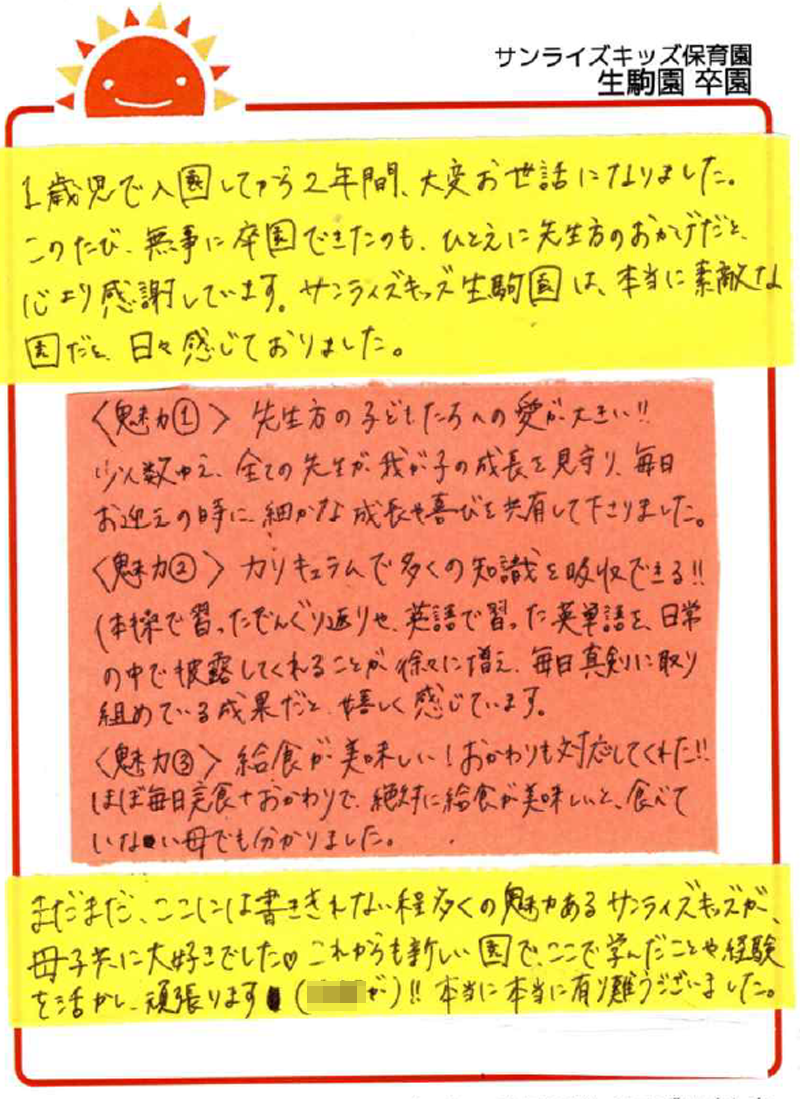 サンライズキッズ保育園
生駒園 卒園
1歳児で入園してから2年間、大変お世話になりました。
このたび、無事に卒園できたのも、ひとえに先生方のおかげだと、
心より感謝しています。サンライズキッズ生駒園は、本当に素敵な
園だと、日々感じておりました。
〈魅力①〉 先生方の子どもたちへの愛が大きい!!
少人数ゆえ、全ての先生が我が子の成長を見守り、毎日
お迎えの時に、細かな成長や喜びを共有して下さりました。
〈魅力②〉 カリキュラムで多くの知識を吸収できる!!
体操で習ったでんぐり返りや、英語で習った英単語を、日常
の中で披露してくれることが徐々に増え、毎日真剣に取り
組めている成果だと、嬉しく感じています。
〈魅力③〉 給食が美味しい!おかわりも対応してくれた!!
ほぼ毎日完食+おかわりで、絶対に給食が美味しいと、食べて
いない母でも分かりました。
まだまだ、ここには書ききれない程多くの魅力あるサンライズキッズが、
母子共に大好きでした♡ これからも新しい園で、ここで学んだことや経験
を活かし、頑張ります ( が)!! 本当に本当に有り難うございました。